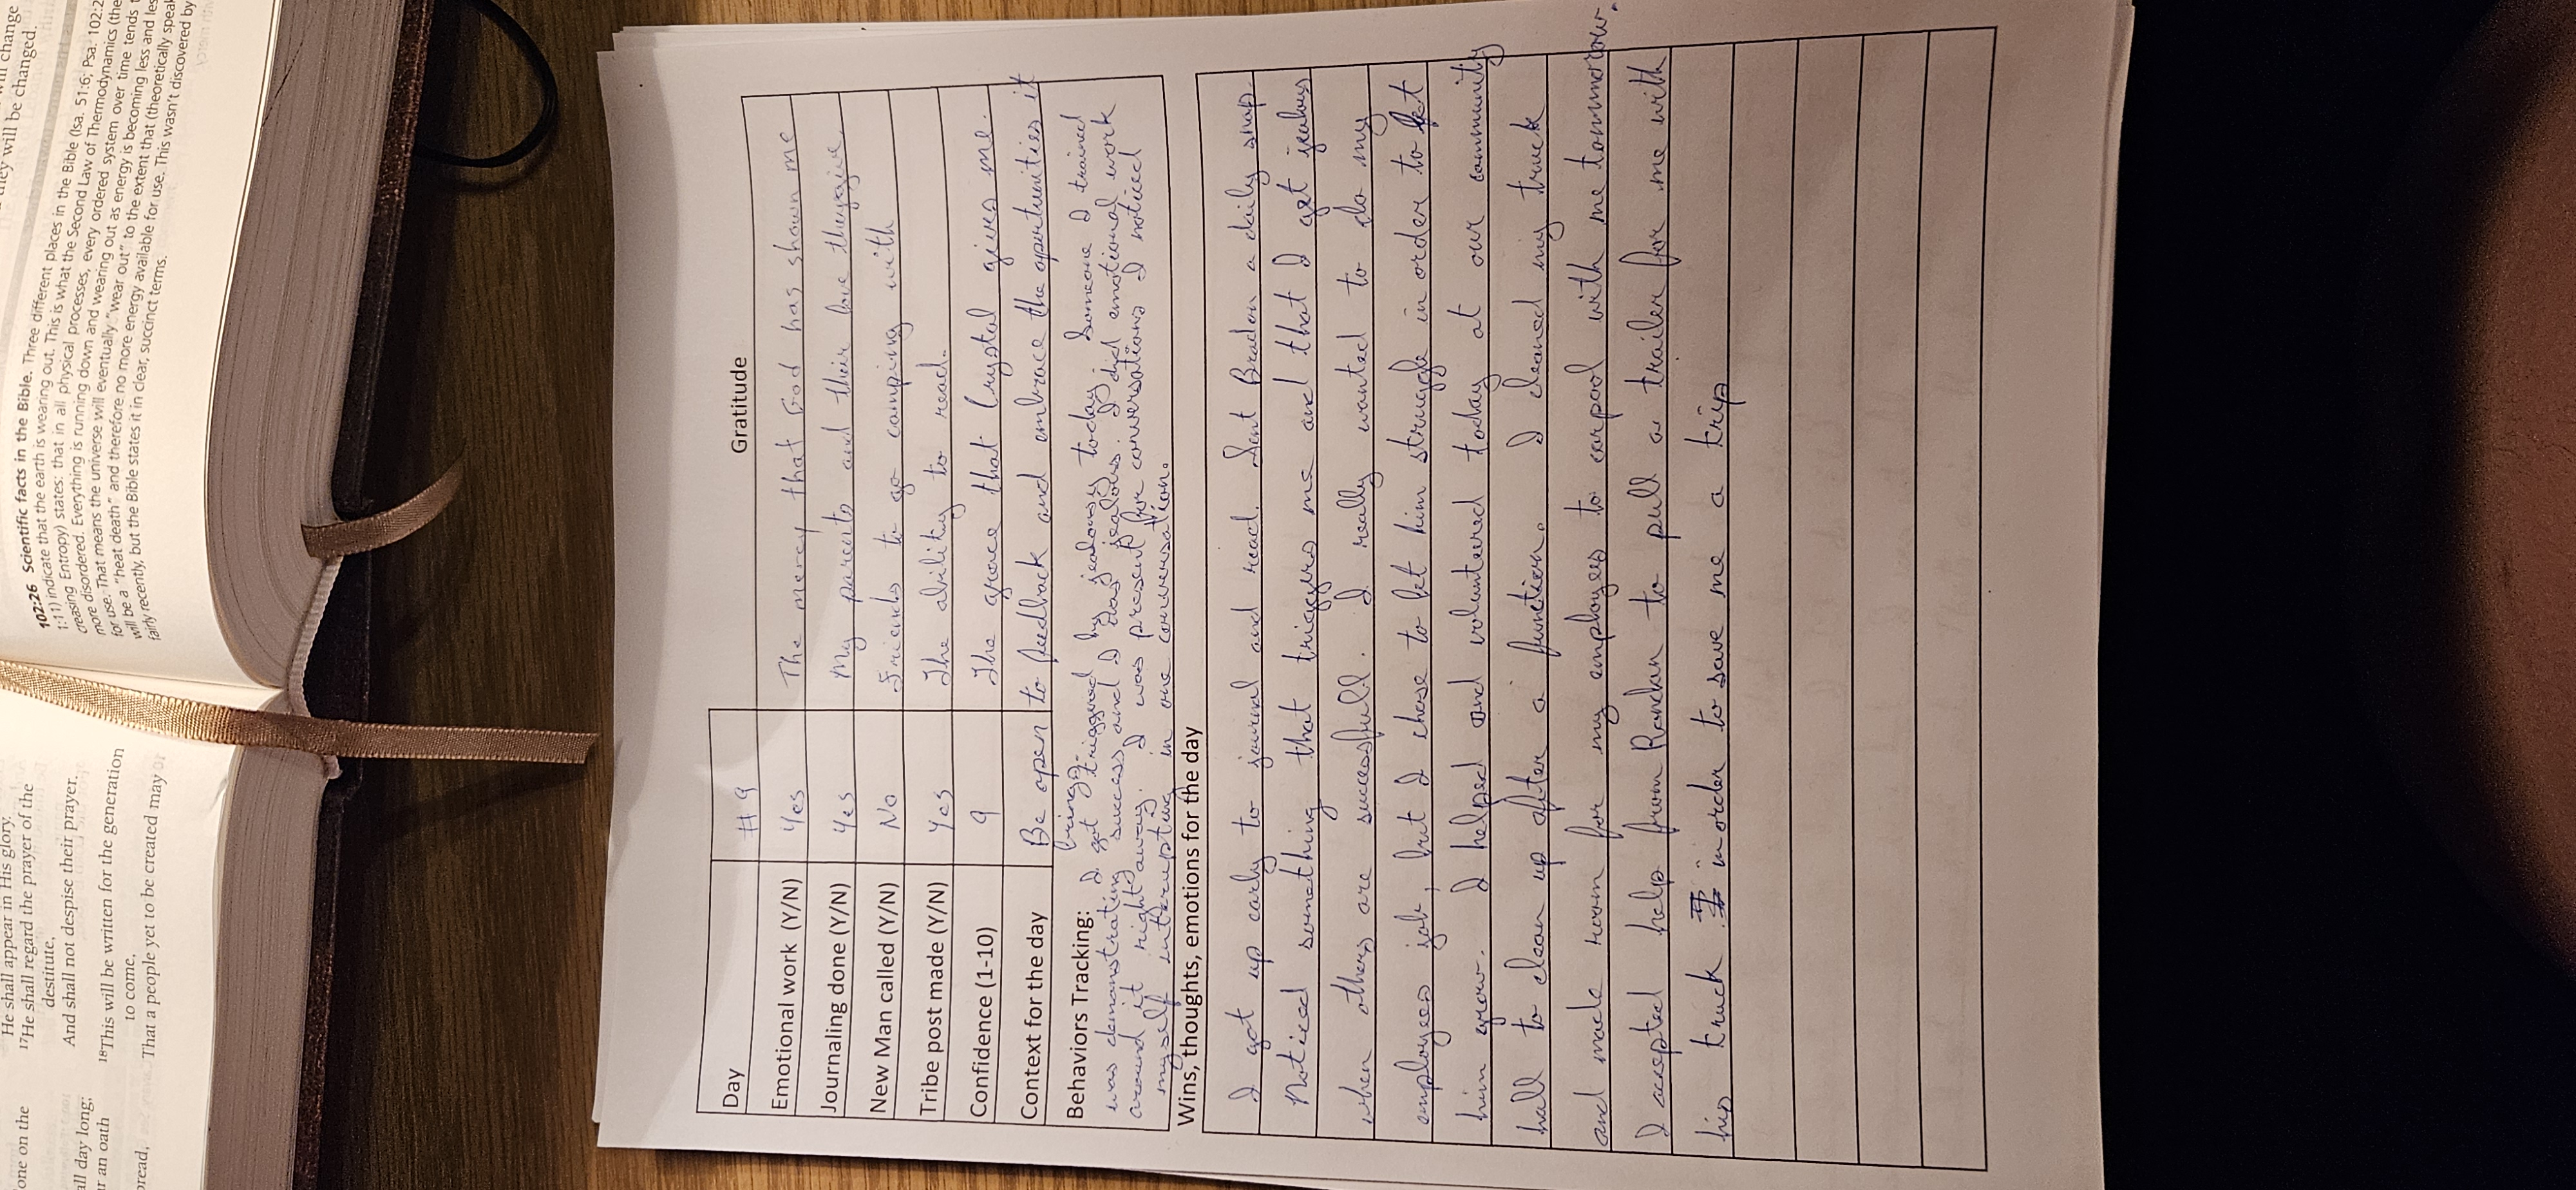 will change
they will be changed.
102:26 Scientific facts in the Bible. Three different places in the Bible (Isa. 51:6; Psa. 102:2
1:11) indicate that the earth is wearing out. This is what the Second Law of Thermodynamics (the
creasing Entropy) states: that in all physical processes, every ordered system over time tends t
more disordered. Everything is running down and wearing out as energy is becoming less and les
for use. That means the universe will eventually "wear out" to the extent that (theoretically speak
will be a "heat death" and therefore no more energy available for use. This wasn't discovered by
fairly recently, but the Bible states it in clear, succinct terms.
one on the
all day long;
r an oath
bread,
He shall appear in His glory.
17He shall regard the prayer of the
destitute,
And shall not despise their prayer.
18This will be written for the generation
to come,
That a people yet to be created may
Day #9 Gratitude
Emotional work (Y/N) Yes The mercy that God has shown me
Journaling done (Y/N) Yes My parents and their love they give
New Man called (Y/N) No Friends to go camping with
Tribe post made (Y/N) Yes The ability to read.
Confidence (1-10) 9 The grace that Crystal gives me.
Context for the day Be open to feedback and embrace the oportunities it
brings.
Behaviors Tracking: I got triggered by jealousy today. Someone I trained
was demonstrating success and I was jealous. I did emotional work
around it right away. I was present for conversations I noticed
myself interrupting in one conversation.
Wins, thoughts, emotions for the day
I got up early to journal and read. Sent Braden a daily snap.
Noticed something that triggers me and that I get jealous
when others are successfull. I really wanted to do my
employees job, but I chose to let him struggle in order to let
him grow. I helped and volunteered today at our community
hall to clean up after a function. I cleaned my truck
and made room for my employees to carpool with me tommorow.
I accepted help from Randan to pull a trailer for me with
his truck in order to save me a trip